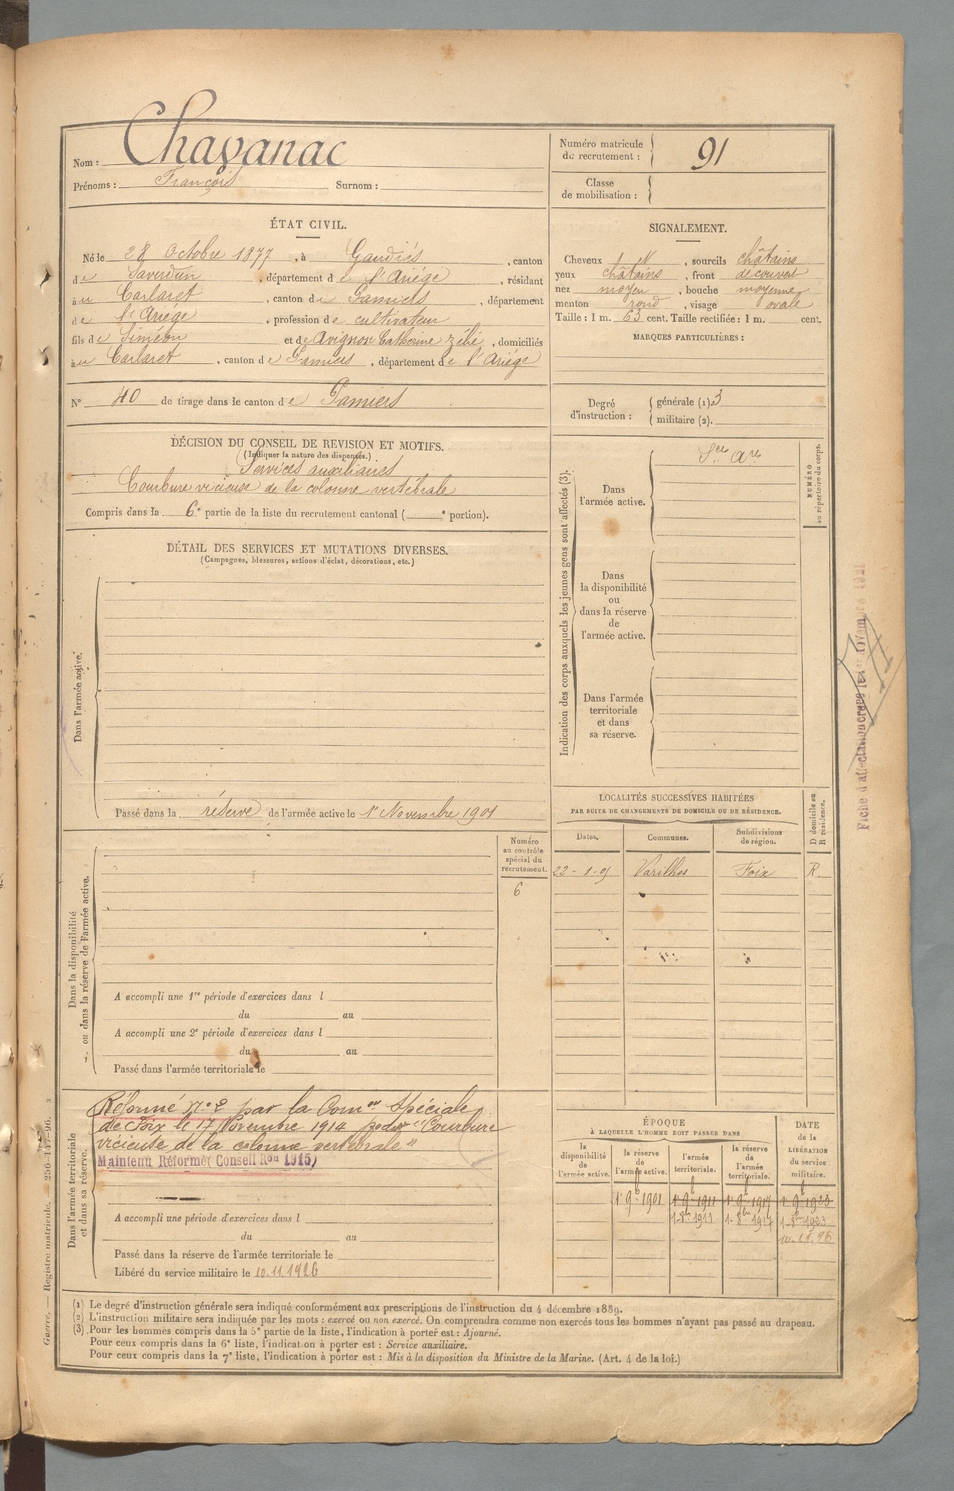 Nom : Chavanac
Prénoms : François Surnom :
Numéro matricule du recrutement : 91
Classe de mobilisation :
ÉTAT CIVIL.
Né le 28 Octobre 1877, à Gaudiès, canton
de Saverdun, département de l'Ariége, résidant
à Carlaret, canton de Pamiers, département
de l'Ariége, profession de cultivateur
fils de Siméon et de Avignon Catherine Zélie, domiciliés
à Carlaret, canton de Pamiers, département de l'Ariége
N° 40 de tirage dans le canton de Pamiers
SIGNALEMENT.
Cheveux N, sourcils châtains
yeux châtains, front découvert
nez moyen, bouche moyenne
menton rond, visage ovale
Taille : 1 m. 63 cent. Taille rectifiée : 1 m. cent.
MARQUES PARTICULIÈRES :
Degré d'instruction : générale (1) 3
militaire (2).
DÉCISION DU CONSEIL DE REVISION ET MOTIFS.
(Indiquer la nature des dispenses.)
Services auxiliaires
Courbure vicieuse de la colonne vertébrale
Compris dans la 6e partie de la liste du recrutement cantonal ( e portion).
DÉTAIL DES SERVICES ET MUTATIONS DIVERSES.
(Campagnes, blessures, actions d'éclat, décorations, etc.)
Dans l'armée active.
Passé dans la réserve de l'armée active le 1er Novembre 1901
Indication des corps auxquels les jeunes gens sont affectés (3).
Dans l'armée active.
Sce Are
NUMÉRO au répertoire du corps.
Dans la disponibilité ou dans la réserve de l'armée active.
Dans l'armée territoriale et dans sa réserve.
Fiche d'affectation
LOCALITÉS SUCCESSIVES HABITÉES
PAR SUITE DE CHANGEMENTS DE DOMICILE OU DE RÉSIDENCE.
Dates. Communes. Subdivisions de région. D domicile ou R résidence.
22-1-05 Varilhes Foix R
Dans la disponibilité ou dans la réserve de l'armée active.
Numéro au contrôle spécial du recrutement.
6
A accompli une 1re période d'exercices dans l
du au
A accompli une 2e période d'exercices dans l
du au
Passé dans l'armée territoriale le
Dans l'armée territoriale et dans sa réserve.
Réformé n° 2 par la Comon Spéciale
de Foix le 17 Novembre 1914 pour "Courbure
vicieuse de la colonne vertébrale"
Maintenu Réformé Conseil Ron 1915
A accompli une période d'exercices dans l
du au
Passé dans la réserve de l'armée territoriale le
Libéré du service militaire le 10.11.1926
ÉPOQUE
À LAQUELLE L'HOMME DOIT PASSER DANS
la disponibilité de l'armée active. la réserve de l'armée active. l'armée territoriale. la réserve de l'armée territoriale. DATE de la LIBÉRATION du service militaire.
1er 9bre 1901 1er 9bre 1911 1er 9bre 1917 1er 9bre 1923
1-8bre 1911 1-8bre 1917 1-8bre 1923
10.11.26
(1) Le degré d'instruction générale sera indiqué conformément aux prescriptions de l'instruction du 4 décembre 1889.
(2) L'instruction militaire sera indiquée par les mots : exercé ou non exercé. On comprendra comme non exercés tous les hommes n'ayant pas passé au drapeau.
(3) Pour les hommes compris dans la 5e partie de la liste, l'indication à porter est : Ajourné.
Pour ceux compris dans la 6e liste, l'indication à porter est : Service auxiliaire.
Pour ceux compris dans la 7e liste, l'indication à porter est : Mis à la disposition du Ministre de la Marine. (Art. 4 de la loi.)
Guerre. — Registre matricule. — 256-147-96.